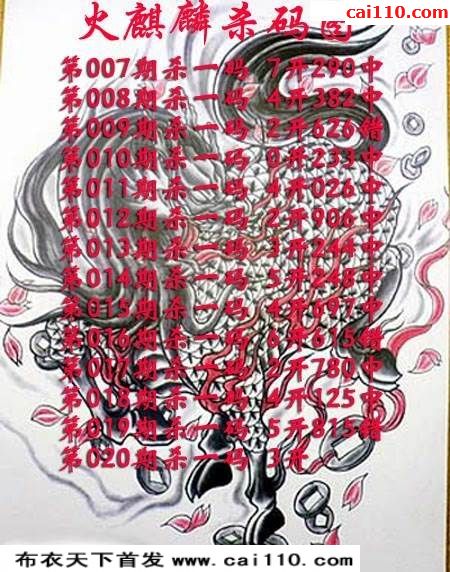 cai110.com
火麒麟杀码图
第007期杀一码 7开290中
第008期杀一码 4开382中
第009期杀一码 2开626错
第010期杀一码 0开233中
第011期杀一码 4开026中
第012期杀一码 2开906中
第013期杀一码 3开244中
第014期杀一码 5开248中
第015期杀一码 4开697中
第016期杀一码 6开615错
第017期杀一码 2开780中
第018期杀一码 4开125中
第019期杀一码 5开815错
第020期杀一码 3开
布衣天下首发 www.cai110.com